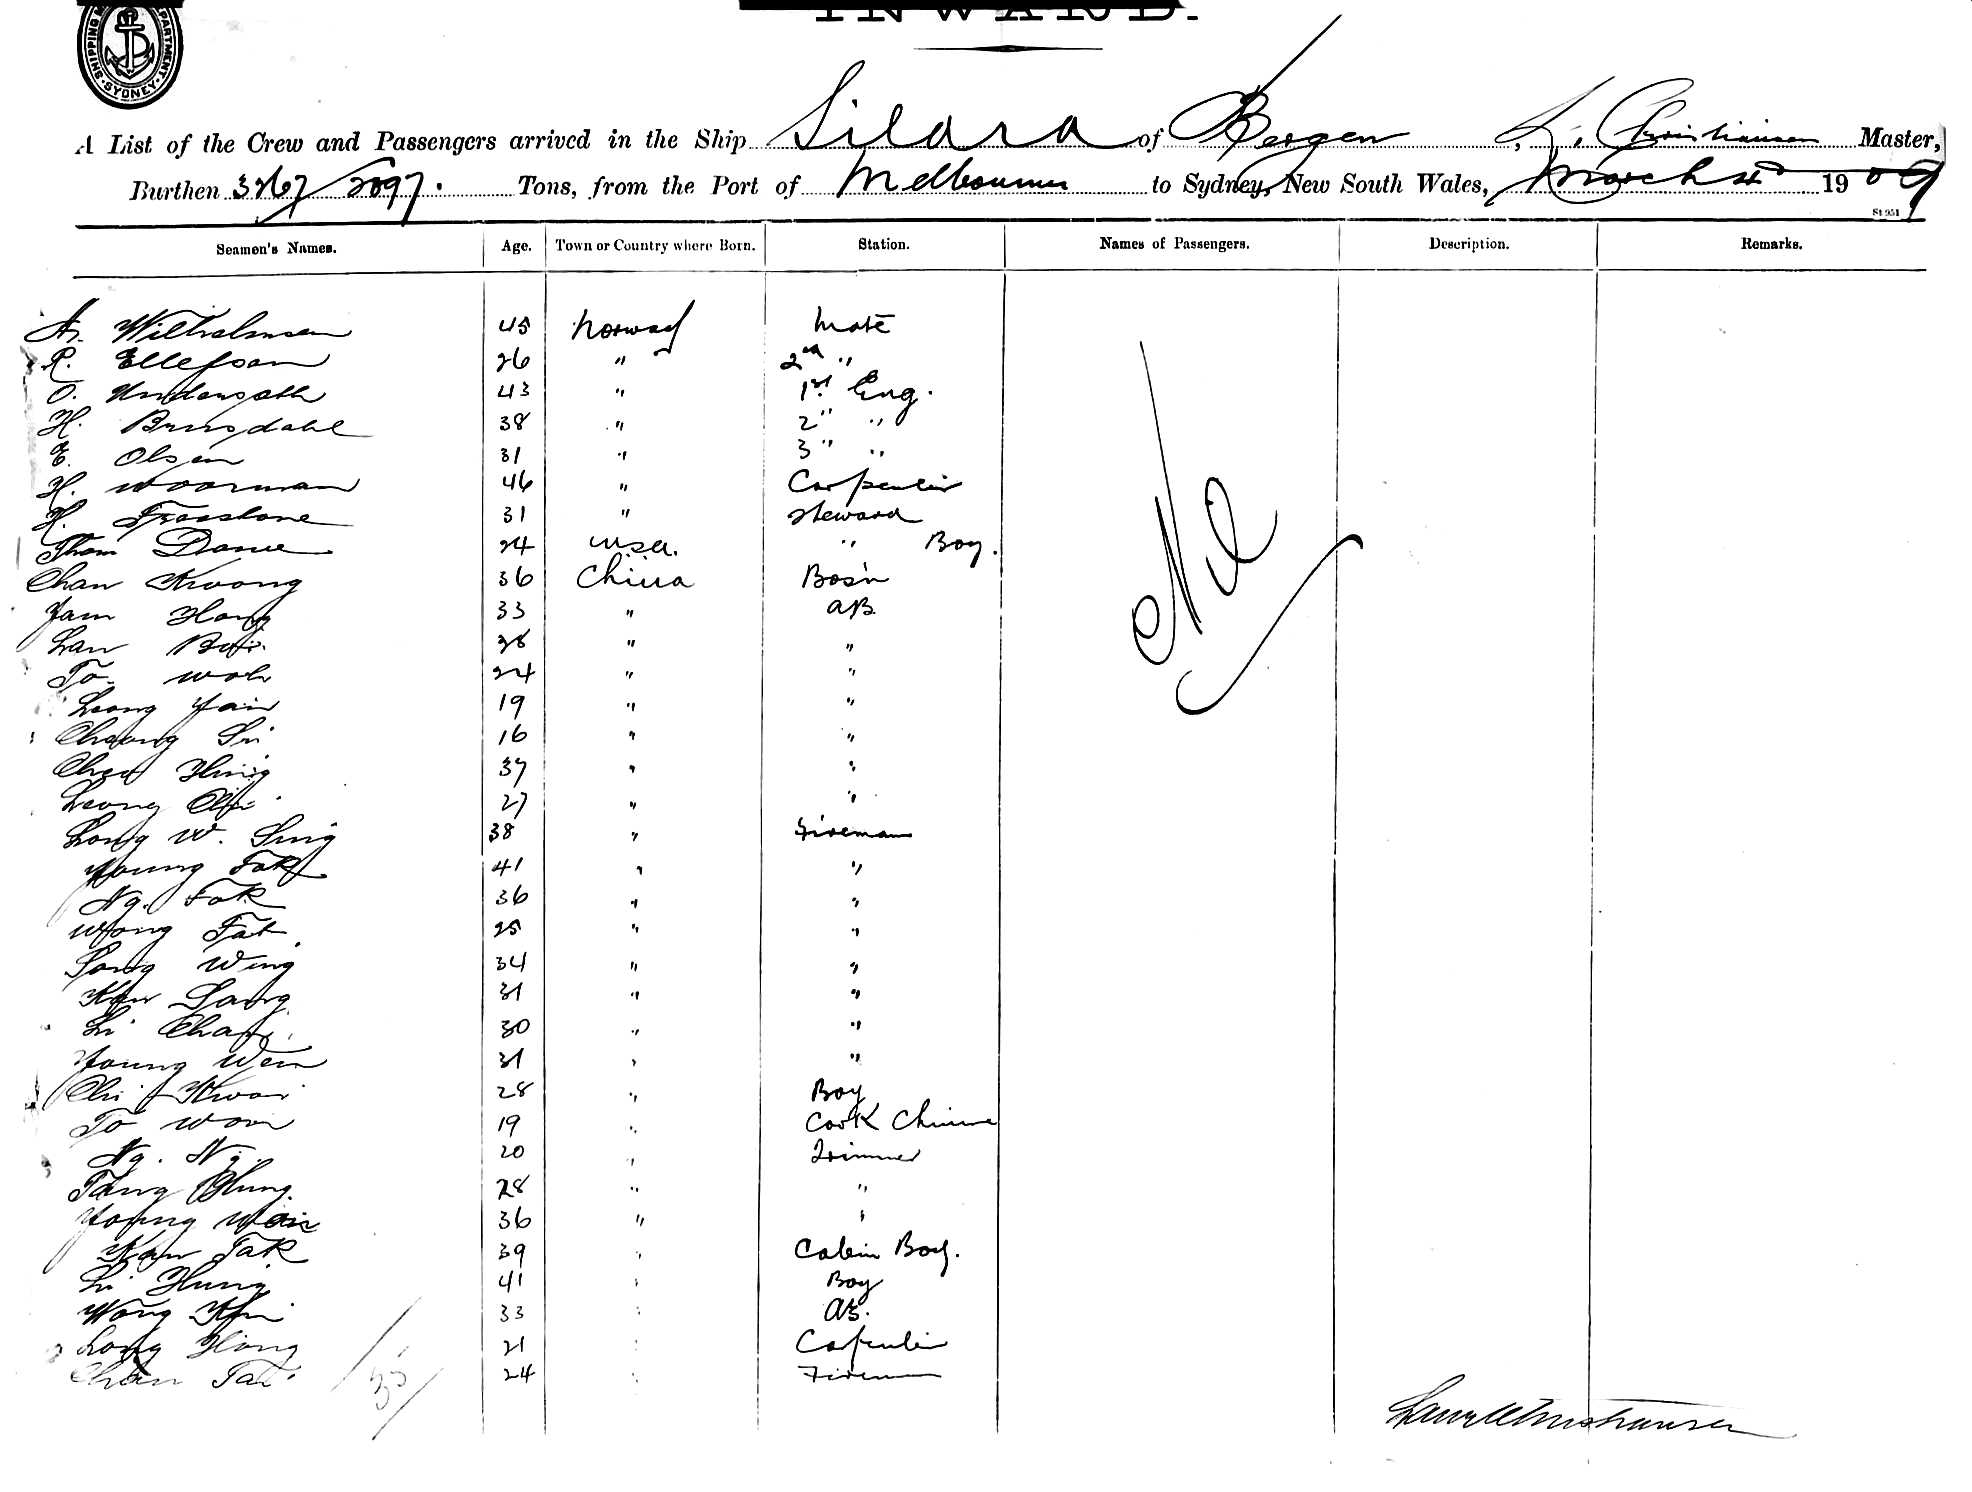 INWARD.
SHIPPING DEPARTMENT SYDNEY
A List of the Crew and Passengers arrived in the Ship Silara of Bergen L. Christiansen Master,
Burthen 3267/2097. Tons, from the Port of Melbourne to Sydney, New South Wales, March 4th 1909
Seamen's Names. Age. Town or Country where Born. Station. Names of Passengers. Description. Remarks.
A. Wilhelmsen 45 Norway Mate
R. Ellefsen 26 " 2nd "
O. 43 " 1st Eng.
H. Brusdahl 38 " 2" "
E. Olsen 31 " 3" "
H. Woorman 46 " Carpenter
H. 31 " Steward
Thom 24 U.S.A. " Boy.
Chan Kwong 36 China Bos'n
Yam Hong 33 " A.B.
Lan 28 " "
To 24 " "
Leong Yain 19 " "
Cheong Sri 16 " "
Hing 37 " "
Leong 27 " "
Long W. Sing 38 " Fireman
Young Fok 41 " "
Ng. Fok 36 " "
Wong Fat 25 " "
Song Wing 34 " "
Kan Sang 31 " "
Li 30 " "
Young Wen 31 " "
Chi Kwai 28 " Boy
To Won 19 " Cook Chinese
Ng. Ng. 20 " Trimmer
Tang Hung 28 " "
Young 36 " "
Kan Tak 39 " Cabin Boy.
Li Hung 41 " Boy
Wong 33 " AB.
Long Hong 21 " Carpenter
Chan Tai 24 " Fireman
Nil